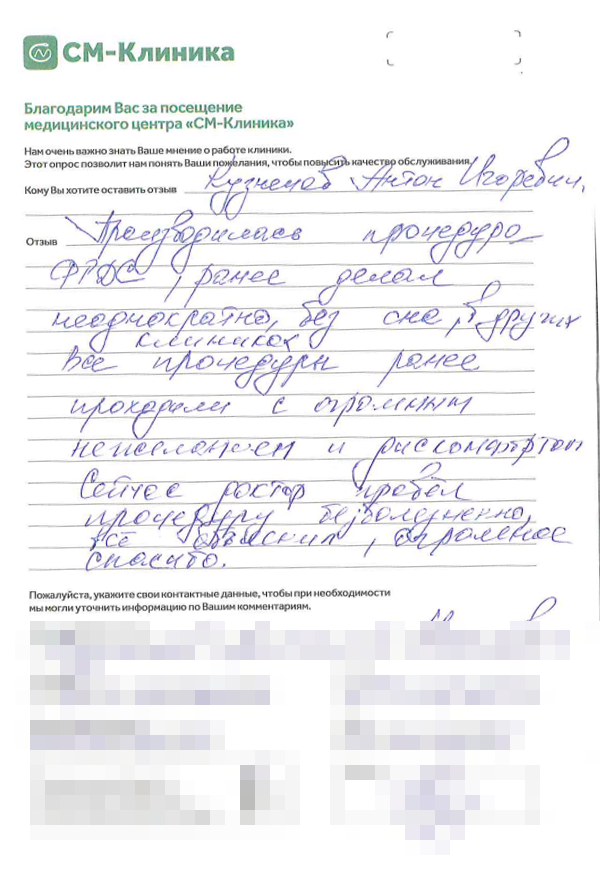 СМ-Клиника
Благодарим Вас за посещение
медицинского центра «СМ-Клиника»
Нам очень важно знать Ваше мнение о работе клиники.
Этот опрос позволит нам понять Ваши пожелания, чтобы повысить качество обслуживания.
Кому Вы хотите оставить отзыв Кузнецов Антон Игоревич.
Отзыв Производилась процедура
ФГДС, ранее делал
неоднократно, без сна, в других
клиниках
Все процедуры ранее
проходили с огромным
нежеланием и дискомфортом
Сейчас доктор провёл
процедуру безболезненно,
всё объяснил, огромное
спасибо.
Пожалуйста, укажите свои контактные данные, чтобы при необходимости
мы могли уточнить информацию по Вашим комментариям.